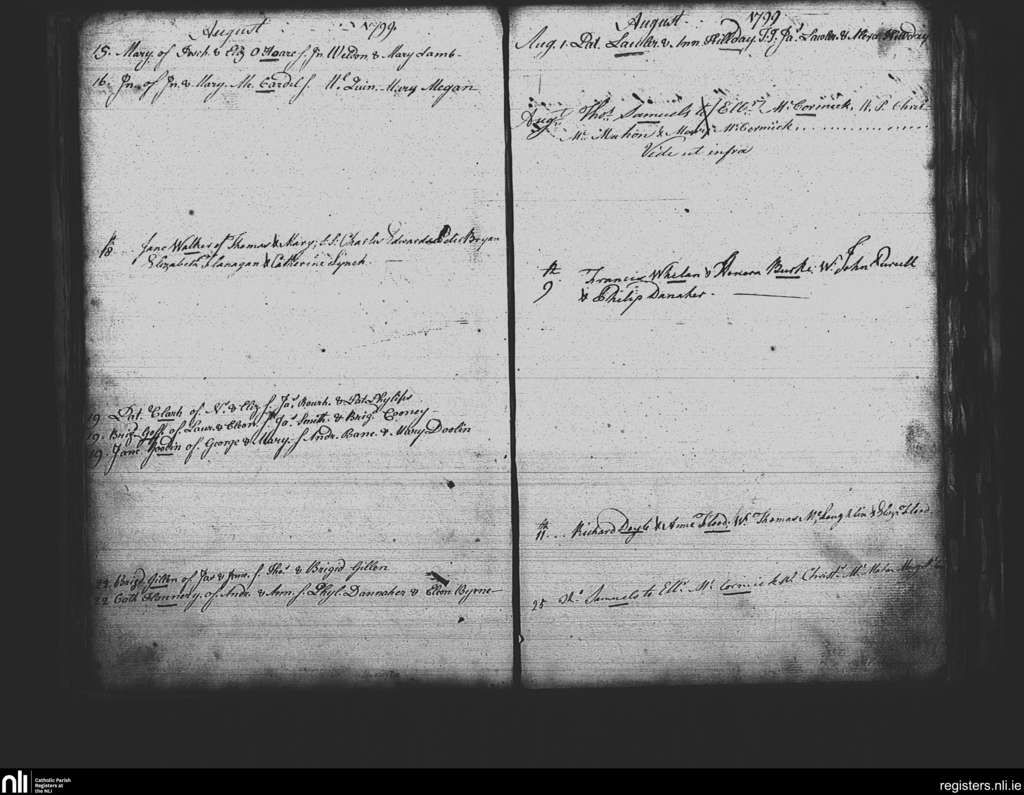 August 1799.
15. Mary of Fredk & Eliz O Hoare f Jn Wilson & Mary Lamb.
16. Jn of Jn & Mary Mc Cardel f. Ml Quin. Mary Megan
18 .. Jane Walker of Thomas & Mary; S.S. Charles Edwards & Peter Bryan
Elizabeth Flanagan & Catherine Lynch.
19. Pat. Clark of Ns & Eliz f Jas Rourk & Pat. Phylips
19. Brigt Goff of Laur & Elean. f Jos Smith & Brigt Cooney
19. Jane Doolin of George & Mary f Andr. Bane & Mary Doolin
22 Brigd Gillen of Jas & Ann f. Thos & Brigid Gillen
22 Cath Kennery of Andr & Ann f. Phyl. Dannaher & Eleon Byrne
August 1799
Aug. 1. Pat. Lawler & Ann Hillday T.J. Jas Lawler & Hillday
Augt Thos Samuels to Ellr Mc Cormick. N.P. Christ
Mc Mahon & Mary McCormick
Vide ut infra
9th Francis Whelan & Honora Burke: Ws John Purcell
& Philip Danaher.
11th .. Richard Doyle & Anne Flood. Ws Thomas McLoughlin & Elizth Flood
25 Ths Samuels to Ellr Mc Cormick Christr Mc Mahon
nli
Catholic Parish
Registers at
the NLI
registers.nli.ie